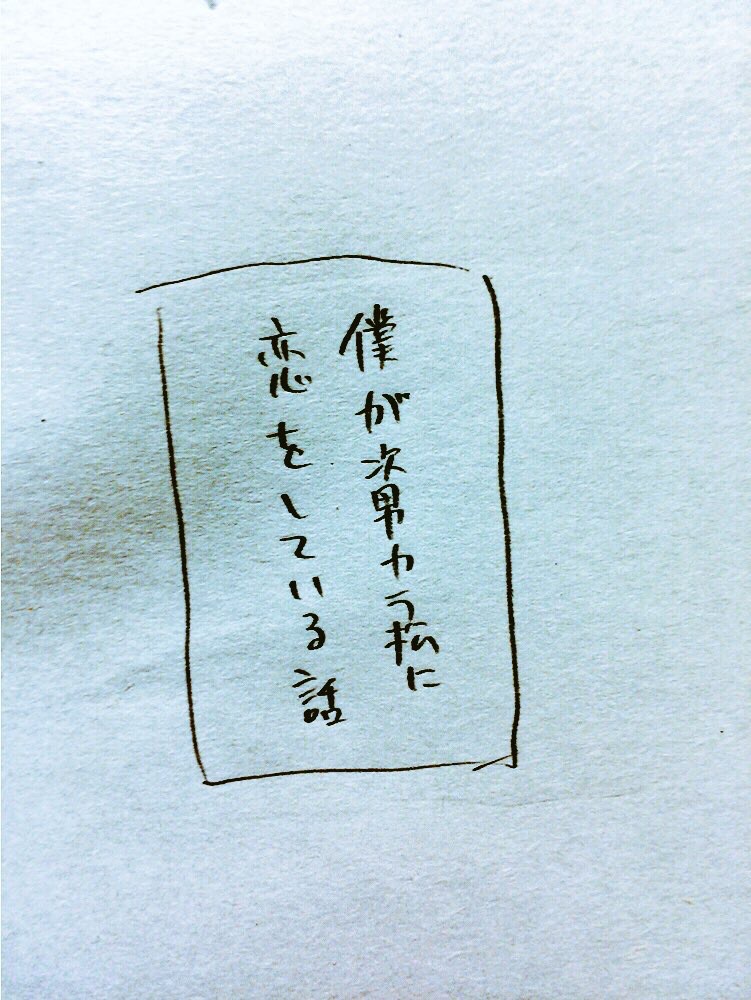 僕が次男カラ松に
恋をしている話